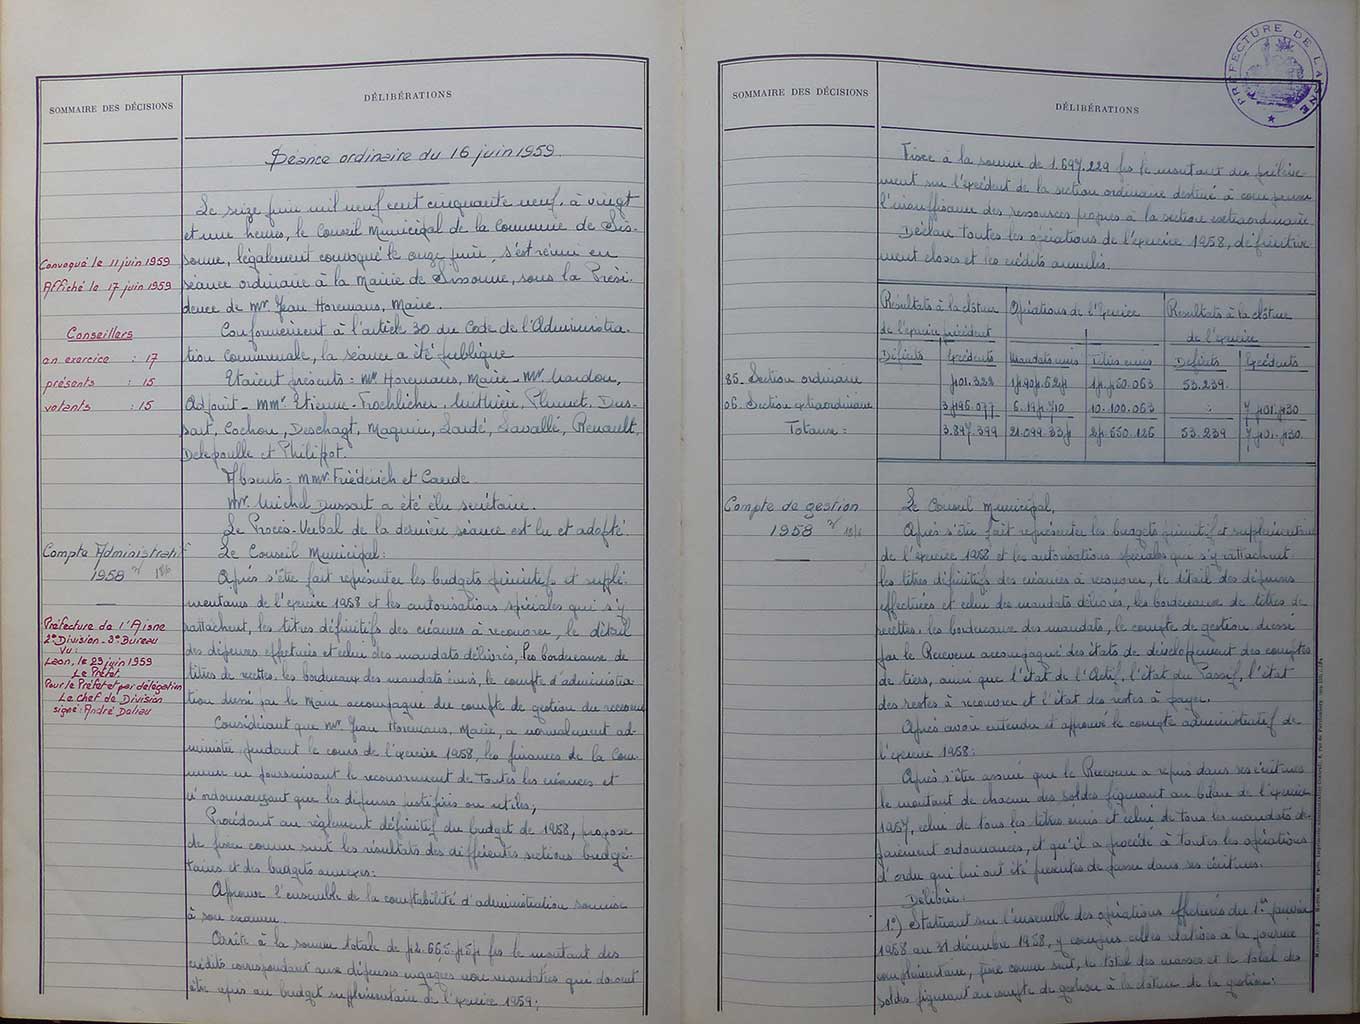 SOMMAIRE DES DÉCISIONS
DÉLIBÉRATIONS
Séance ordinaire du 16 juin 1959.
Le seize juin mil neuf cent cinquante neuf, à vingt
et une heures, le Conseil Municipal de la Commune de Sis-
sonne, légalement convoqué le onze juin, s'est réuni en
séance ordinaire à la Mairie de Sissonne, sous la Prési-
dence de Mr. Jean Horemans, Maire.
Convoqué le 11 juin 1959
Affiché le 17 juin 1959
Conseillers
en exercice : 17
présents : 15
votants : 15
Conformément à l'article 30 du Code de l'Administra-
tion communale, la séance a été publique
Etaient présents = Mr Horemans, Maire - Mr.
Adjoint - MMr. Etienne - Froehlicher, Plumet, Dus-
sart, Cochon, Deschagt, Maquin, Lardé, Lavallé, Renault,
Delepoulle et Philippot.
Absents = MMr Friéderich et Caude.
Mr. Michel Dussart a été élu secrétaire.
Le Procès-Verbal de la dernière séance est lu et adopté.
Compte Administratif
1958
Le Conseil Municipal:
Après s'être fait représenter les budgets primitif et supplé-
mentaires de l'exercice 1958 et les autorisations spéciales qui s'y
rattachent, les titres définitifs des créances à recouvrer, le détail
des dépenses effectuées et celui des mandats délivrés, les bordereaux de
titres de recettes, les bordereaux des mandats émis, le compte d'administra
tion dressé par le Maire accompagné du compte de gestion du receveur
Préfecture de l'Aisne
2e Division - 3e Bureau
Vu:
Laon, le 29 juin 1959
Le Préfet
Pour le Préfet et par délégation
Le Chef de Division
signé: André
Considérant que Mr. Jean Horemans, Maire, a normalement ad-
ministré pendant le cours de l'exercice 1958, les finances de la Com-
mune en poursuivant le recouvrement de toutes les créances et
n'ordonnançant que les dépenses justifiées ou utiles;
Procédant au règlement définitif du budget de 1958, propose
de fixer comme suit les résultats des différentes sections budgé-
taires et des budgets annexes:
Approuve l'ensemble de la comptabilité d'administration soumise
à son examen.
Arrête à la somme totale de frs le montant des
crédits correspondant aux dépenses engagées non mandatées qui doivent
être repris au budget supplémentaire de l'exercice 1959;
PRÉFECTURE DE L'AISNE
SOMMAIRE DES DÉCISIONS
DÉLIBÉRATIONS
Fixe à la somme de 1.697.229 frs le montant du prélève-
ment sur l'excédent de la section ordinaire destiné à compenser
l'insuffisance des ressources propres à la section extraordinaire
Déclare toutes les opérations de l'exercice 1958, définitive
ment closes et les crédits annulés.
Résultats à la clôture de l'exercice précédent
Opérations de l'Exercice
Résultats à la clôture de l'exercice
Déficits
Excédents
Mandats émis
Titres émis
Déficits
Excédents
Section ordinaire
53.239
Section extraordinaire
10.100.063
Totaux =
53.239
Compte de gestion
1958
Le Conseil Municipal,
Après s'être fait représenter les budgets primitif et supplémentaire
de l'exercice 1958 et les autorisations spéciales qui s'y rattachent
les titres définitifs des créances à recouvrer, le détail des dépenses
effectuées et celui des mandats délivrés, les bordereaux de titres de
recettes, les bordereaux des mandats, le compte de gestion dressé
par le Receveur accompagné des états de développement des comptes
de tiers, ainsi que l'état de l'Actif, l'état du Passif, l'état
des restes à recouvrer et l'état des restes à payer.
Après avoir entendu et approuvé le compte administratif de
l'exercice 1958:
Après s'être assuré que le Receveur a repris dans ses écritures
le montant de chacun des soldes figurant au bilan de l'exercice
1957, celui de tous les titres émis et celui de tous les mandats de
paiement ordonnancés, et qu'il a procédé à toutes les opérations
d'ordre qui lui ont été prescrites de passer dans ses écritures.
Délibère:
1°) Statuant sur l'ensemble des opérations effectuées du 1er janvier
1958 au 31 décembre 1958, y compris celles relatives à la journée
complémentaire, fixe comme suit, le total des masses et le total des
soldes figurant au compte de gestion à la clôture de la gestion: